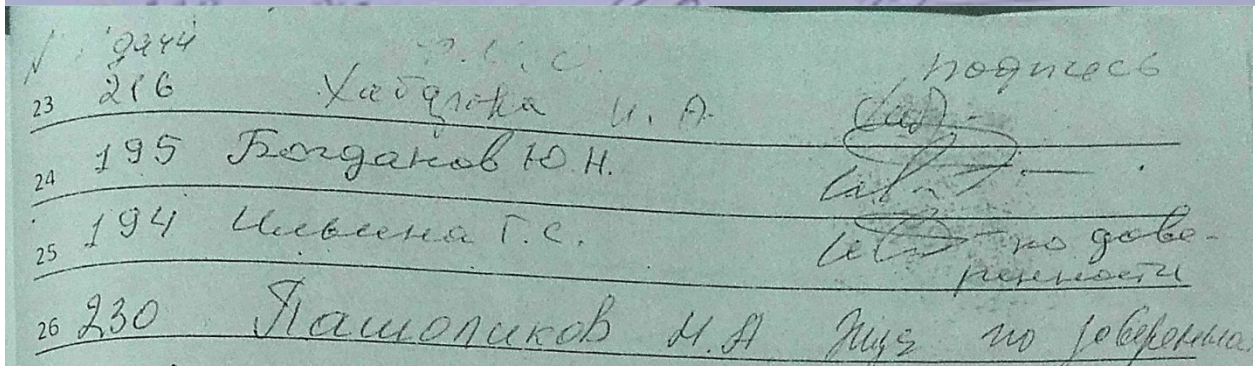 N дачи Ф.И.О. подпись
23 216 И.А.
24 195 Богданов Ю.Н.
25 194 Ильина Г.С. по дове-
ренности
26 230 Пашоликов И.А по доверенна.